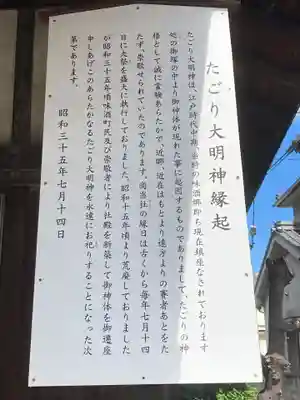 たごり大明神縁起
たごり大明神は、江戸時代中期、当時の味酒郷即ち現在鎮座なされております
処の御塚の中より御神体が現れた事に起因するものでありまして、たごりの神
様として誠に霊験あらたかで、近郷、近在はもとより遠方よりの賽者あとをた
たず、崇敬せられていたのであります。尚当社の縁日は古くから毎年七月十四
日に大祭を盛大に執行しておりました。昭和十五年頃より荒廃しておりました
が昭和三十五年頃味酒町民及び崇敬者により社殿を新築して御神体を御遷座
申しあげこのあらたかなるたごり大明神を永遠にお祀りすることになった次
第であります。
昭和三十五年七月十四日